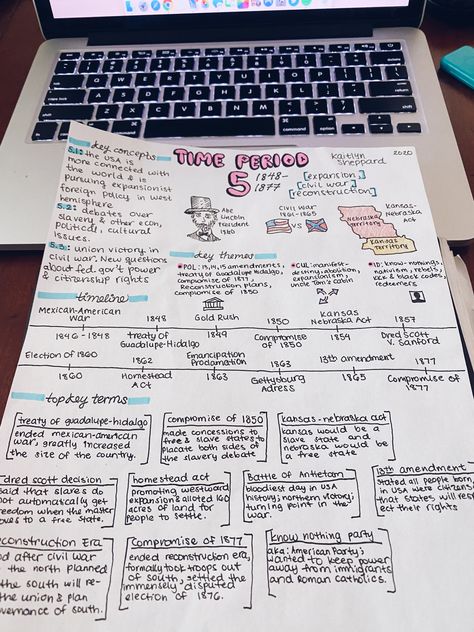 key concepts
5.1: the USA is
more connected with
the world & is
pursuing expansionist
foreign policy in west
hemisphere
5.2: debates over
slavery & other econ,
political, cultural
issues.
5.3: union victory in
civil war. New questions
about fed. gov't power
& citizenship rights
TIME PERIOD
5
1848-
1877
[expansion]
[civil war]
[reconstruction]
Kaitlyn
Sheppard
2020
Abe
Lincoln
President
1860
CIVIL WAR
1861-1865
VS
Nebraska
Territory
Kansas
Territory
Kansas-
Nebraska
Act
key themes
POL: 13,14,15 amendments,
treaty of Guadalupe hidalgo,
compromise of 1877,
Reconstruction plans,
compromise of 1850
CUL: manifest-
destiny, abolition,
expansionism,
uncle Tom's cabin
ID: know-nothings,
nativism, rebels,
KKK & black codes,
redeemers
timeline
Mexican-American
War
1846-1848
1848
treaty of
Guadalupe-Hidalgo
Gold Rush
1849
1850
Compromise
of 1850
Kansas
Nebraska Act
1854
1857
Dred Scott
V. Sanford
Election of 1860
1860
1862
Homestead
Act
Emancipation
Proclamation
1863
1863
Gettysburg
Adress
13th amendment
1865
1877
Compromise of
1877
top key terms
[treaty of guadalupe-hidalgo]
ended mexican-american
war, greatly increased
the size of the country.
compromise of 1850
made concessions to
free & slave states to
placate both sides of
the slavery debate
kansas-nebraska act
kansas would be a
slave state and
nebraska would be
a free state
dred scott decision
said that slaves do
not automatically get
freedom when the master
moves to a free state.
homestead act
promoting westward
expansion & alloted 160
acres of land for
people to settle.
Battle of Antietam
bloodiest day in USA
history; northern victory;
turning point in the
war.
13th amendment
stated all people born
in USA were citizens
that states will res-
pect their rights
Reconstruction Era
after civil war
the north planned
the south will re-
the union & plan
governance of south.
Compromise of 1877
ended reconstruction era,
formally took troops out
of south, settled the
immensely disputed
election of 1876.
know nothing party
aka: American Party;
wanted to keep power
away from immigrants
and roman catholics.